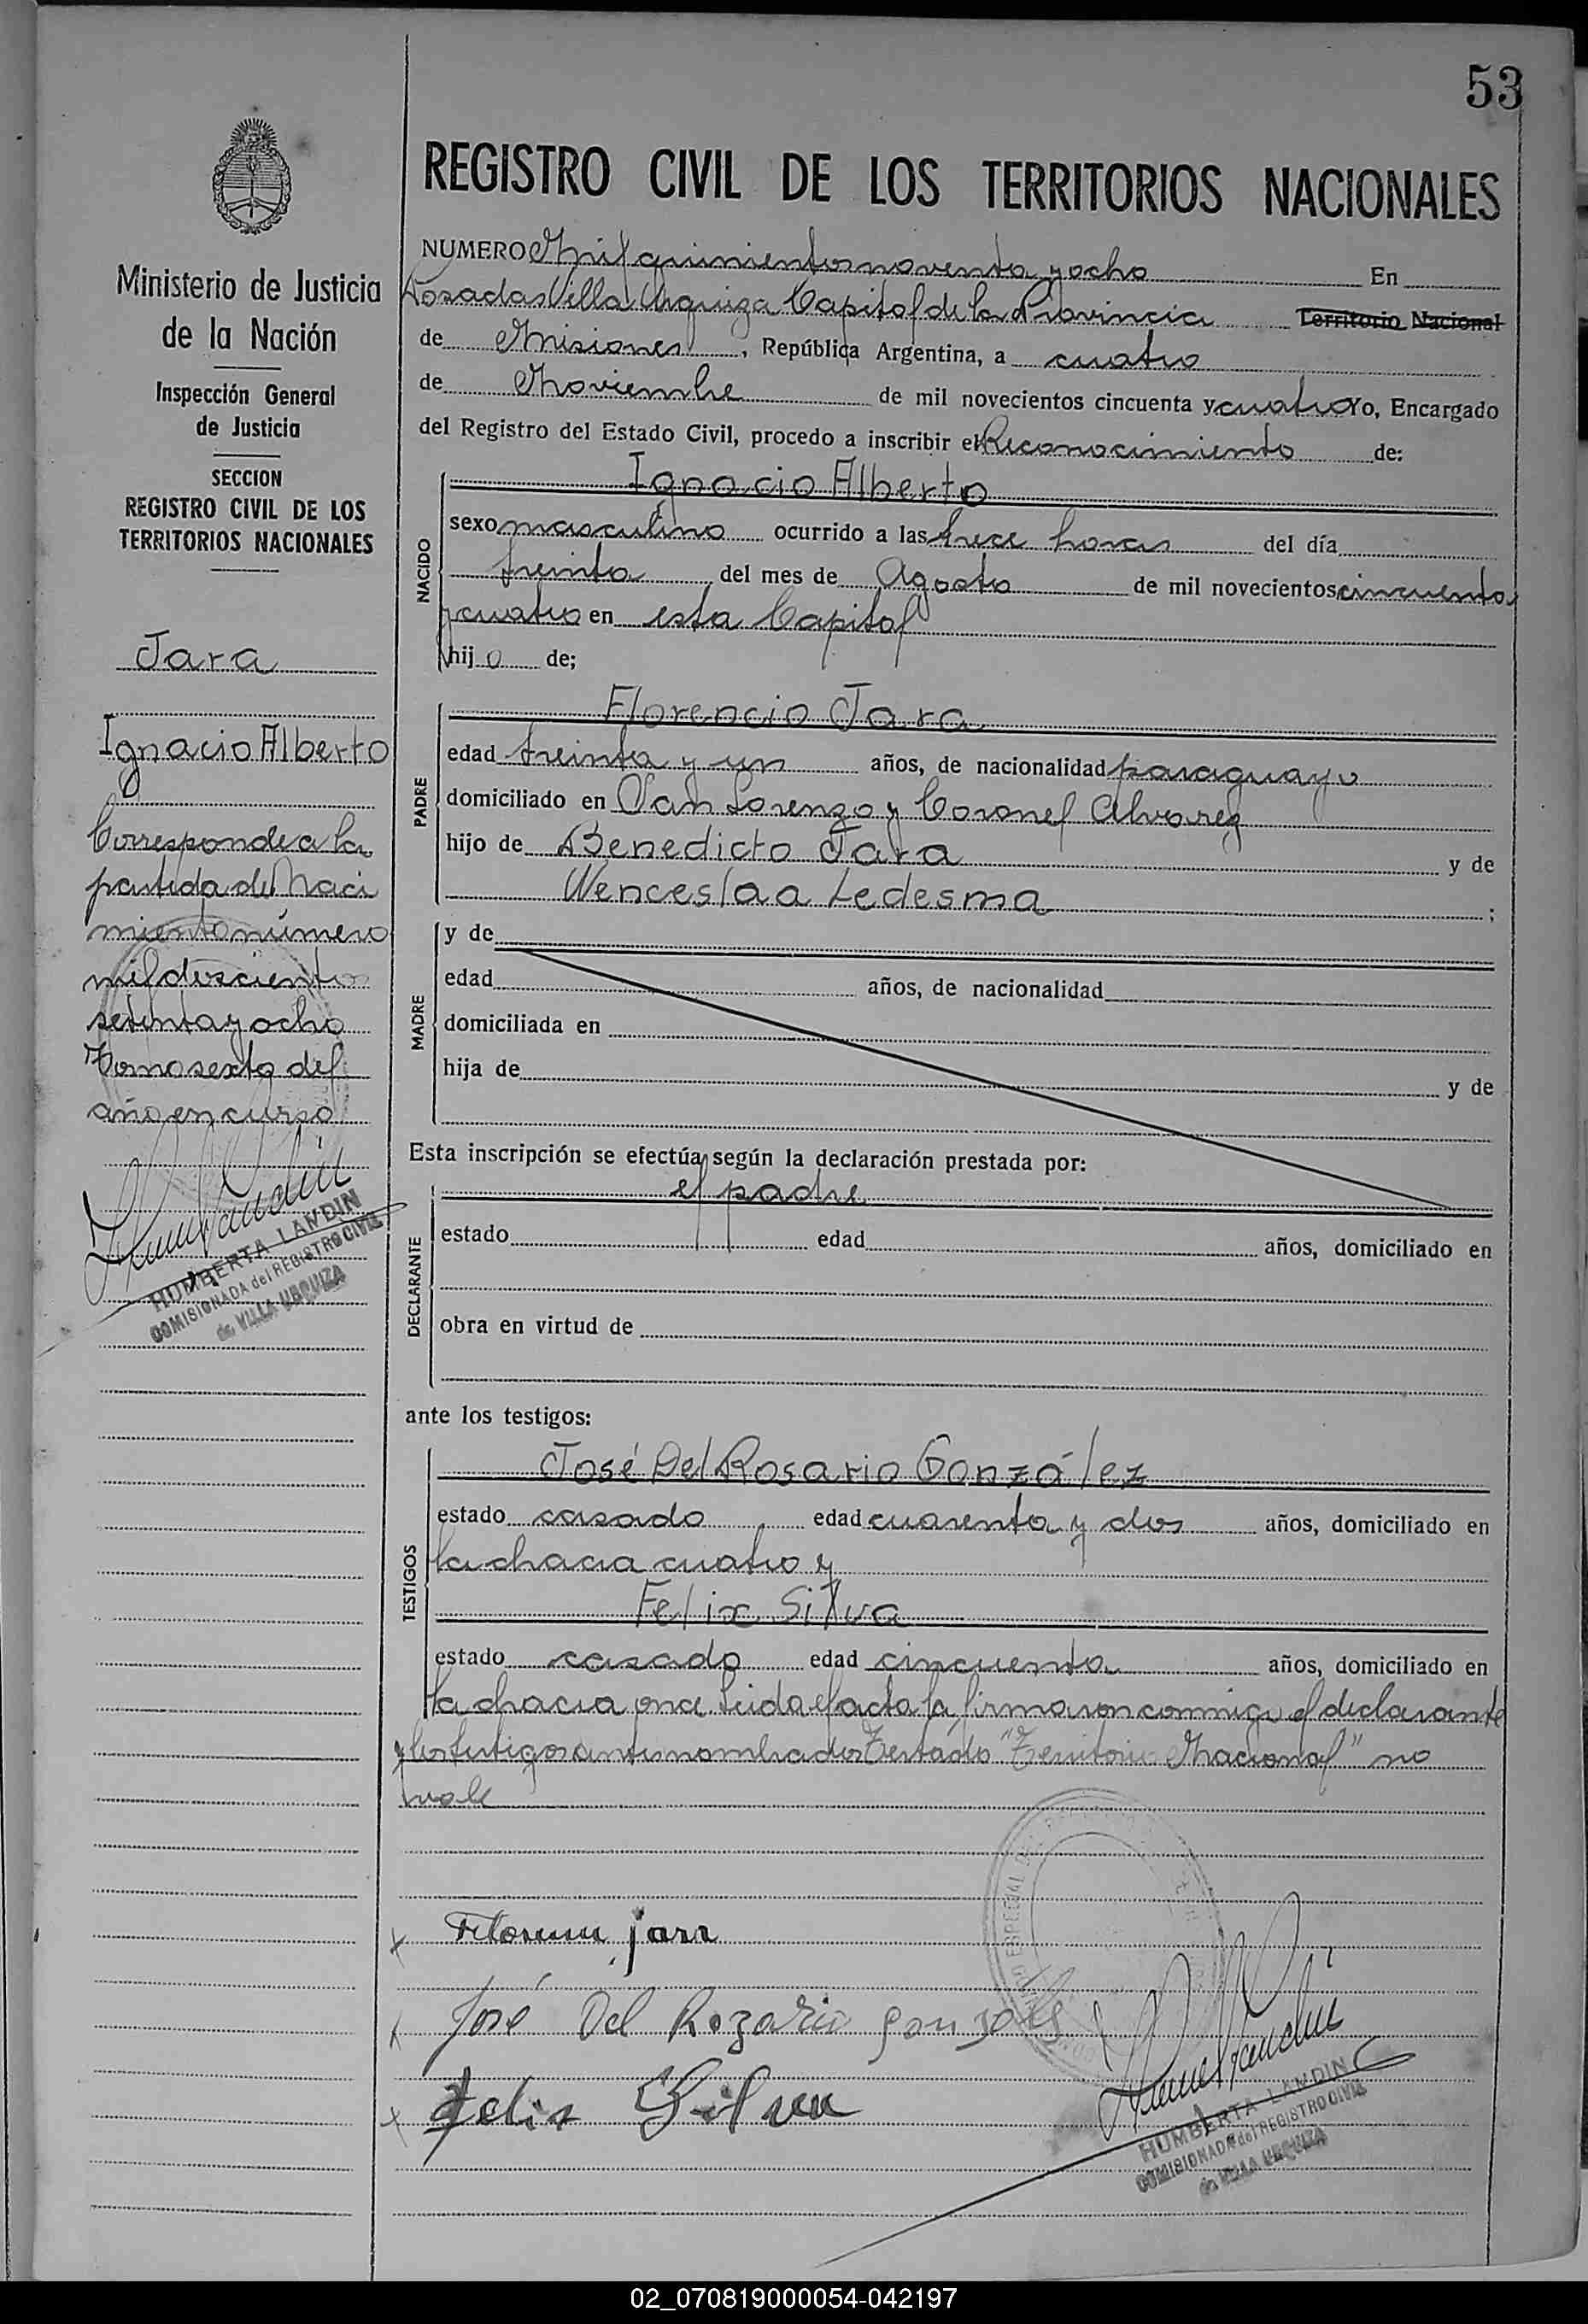 53
REGISTRO CIVIL DE LOS TERRITORIOS NACIONALES
Ministerio de Justicia
de la Nación
Inspección General
de Justicia
SECCION
REGISTRO CIVIL DE LOS
TERRITORIOS NACIONALES
Jara
Ignacio Alberto
Corresponde a la
partida de Naci
miento número
mil doscientos
setenta y ocho
Tomo sexto del
año en curso
HUMBERTA LANDIN
COMISIONADA del REGISTRO CIVIL
de VILLA URQUIZA
NUMERO Mil quinientos noventa y ocho En
Posadas Villa Urquiza Capital de la Provincia Territorio Nacional
de Misiones, República Argentina, a cuatro
de Noviembre de mil novecientos cincuenta y cuatro Yo, Encargado
del Registro del Estado Civil, procedo a inscribir el Reconocimiento de:
NACIDO
Ignacio Alberto
sexo masculino ocurrido a las trece horas del día
treinta del mes de Agosto de mil novecientos cincuenta
y cuatro en esta Capital
hijo de;
PADRE
Florencio Jara
edad treinta y un años, de nacionalidad paraguayo
domiciliado en San Lorenzo y Coronel Alvarez
hijo de Benedicto Jara y de
Wenceslaa Ledesma;
MADRE
y de
edad años, de nacionalidad
domiciliada en
hija de y de
Esta inscripción se efectúa según la declaración prestada por:
DECLARANTE
el padre
estado edad años, domiciliado en
obra en virtud de
ante los testigos:
TESTIGOS
José Del Rosario González
estado casado edad cuarenta y dos años, domiciliado en
la chacra cuatro y
Felix Silva
estado casado edad cincuenta años, domiciliado en
la chacra once. Leida el acta la firmaron conmigo el declarante
y los testigos antes nombrados Testado "Territorio Nacional" no
vale
jara
José Del Rozario
Felix Silva
HUMBERTA LANDIN
COMISIONADA del REGISTRO CIVIL
de VILLA URQUIZA
02_070819000054-042197